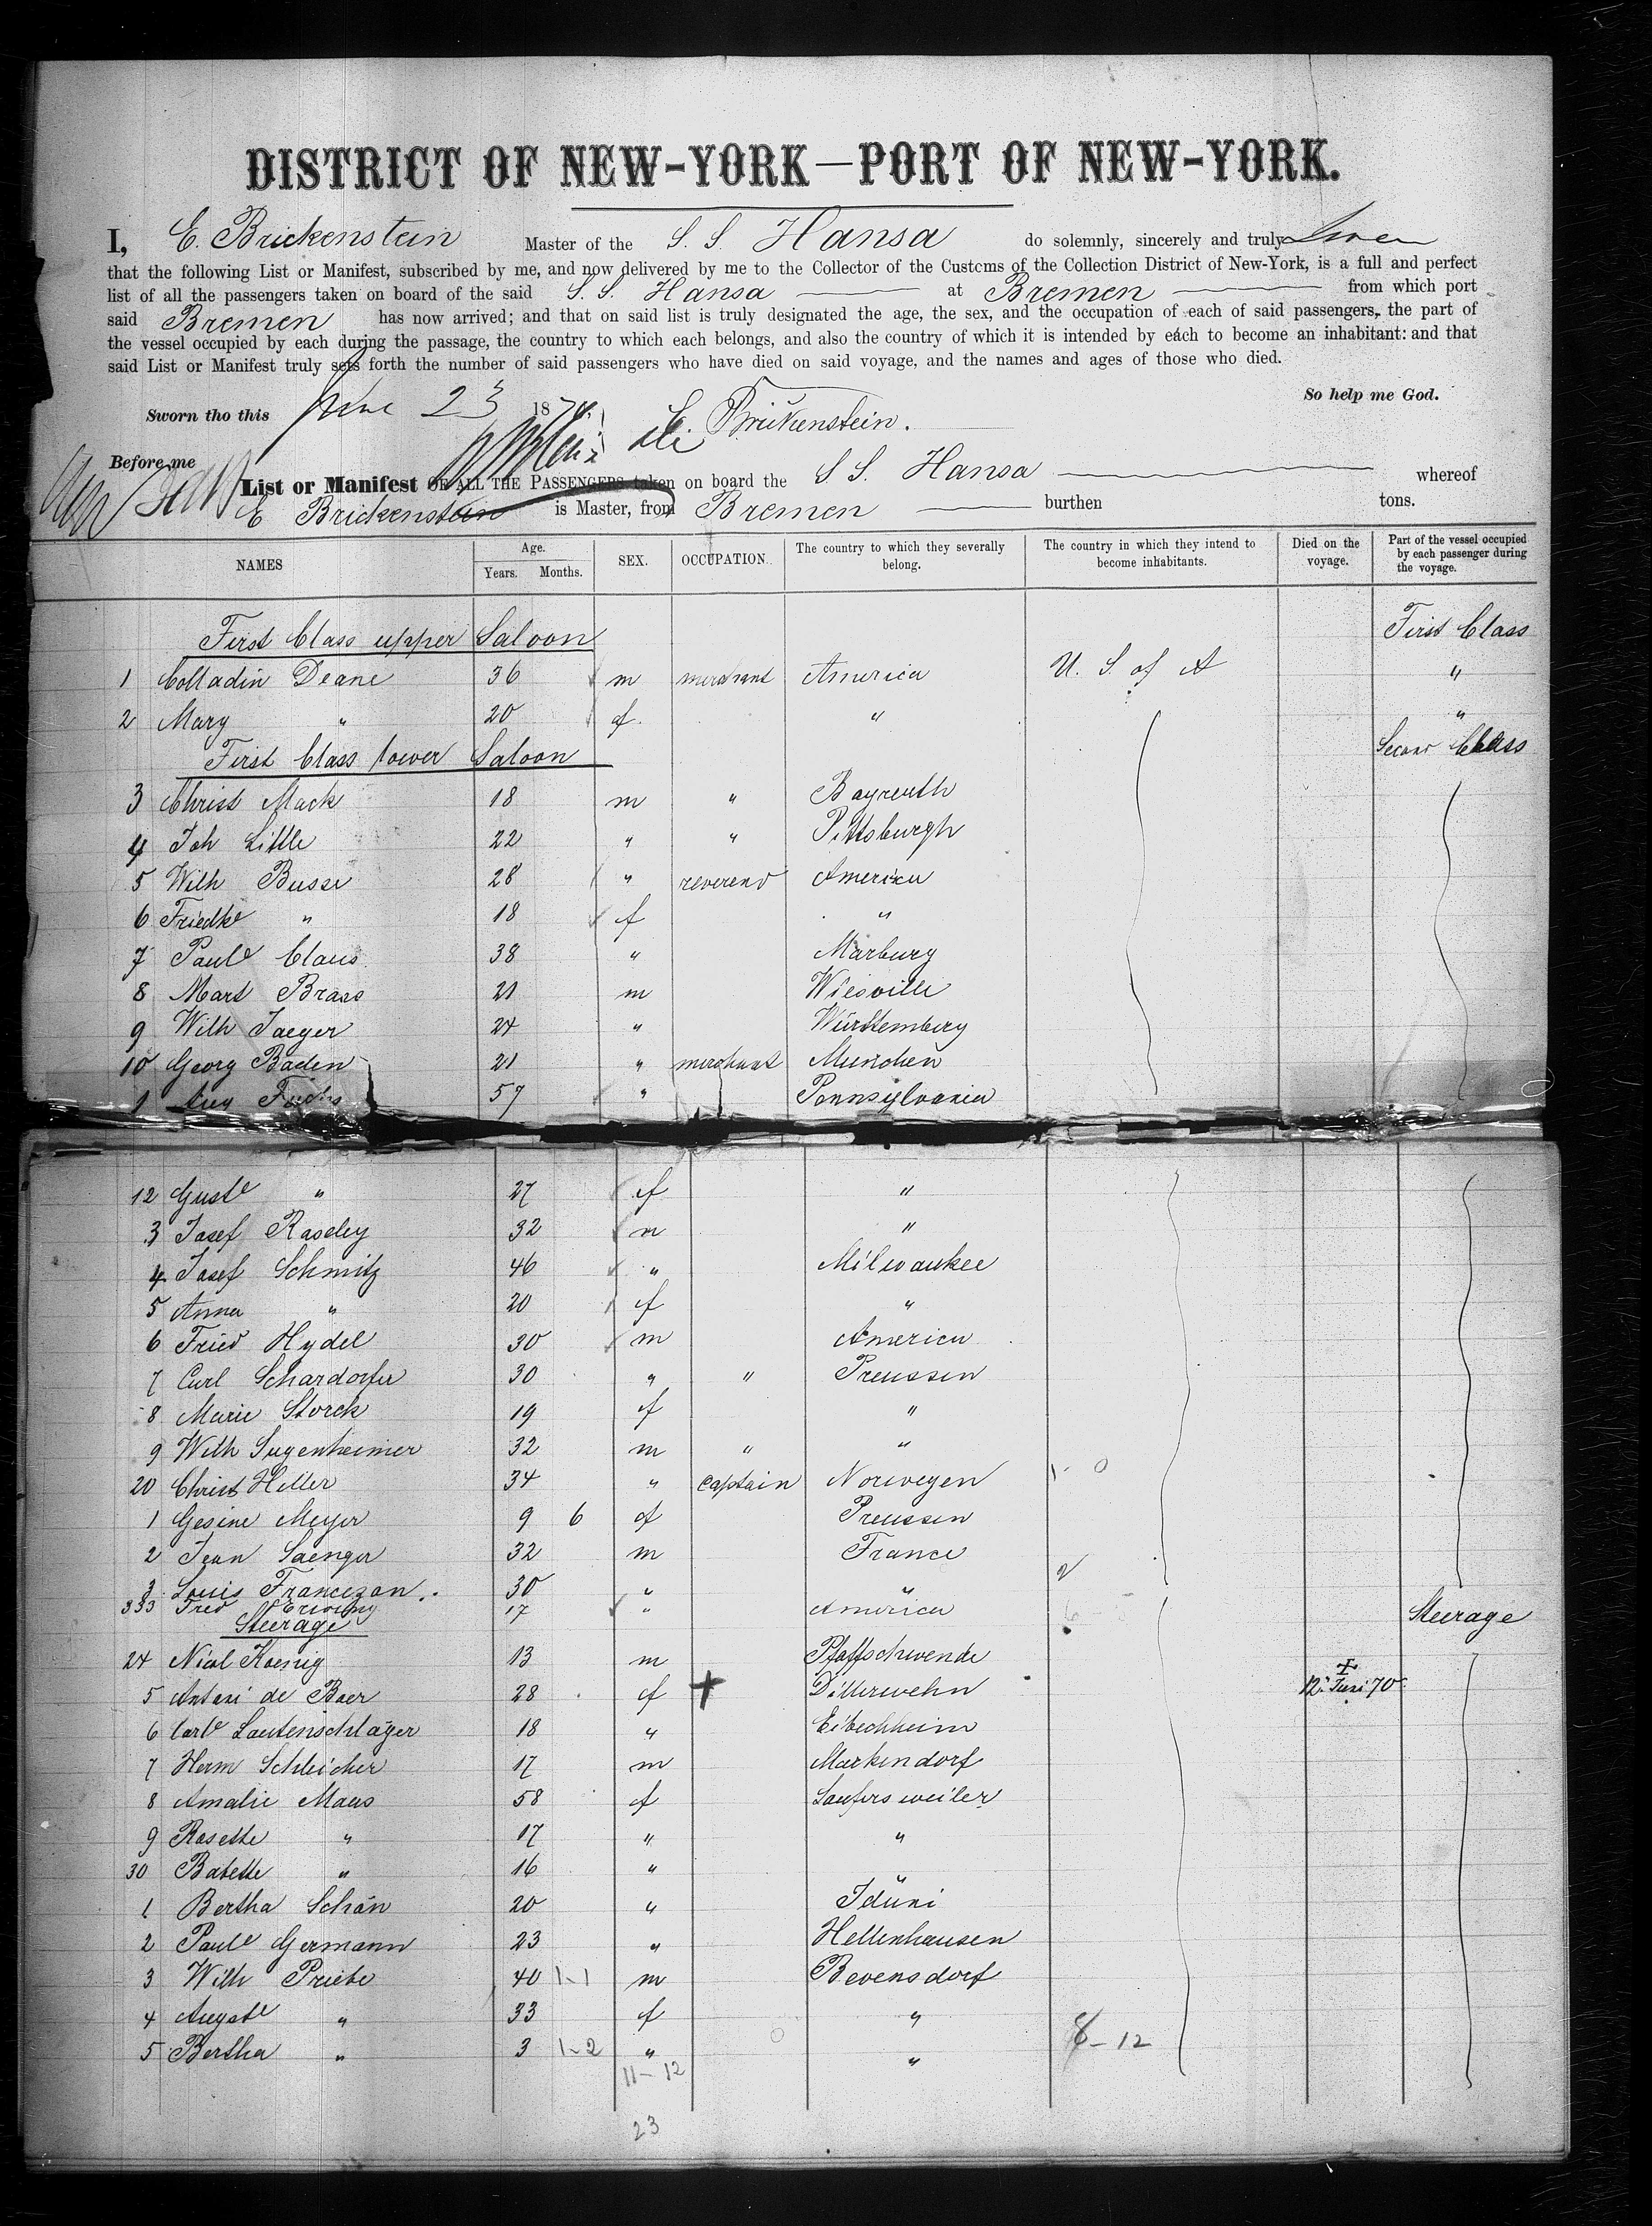 DISTRICT OF NEW-YORK—PORT OF NEW-YORK.
I, E. Brickenstein Master of the S. S. Hansa do solemnly, sincerely and truly Swear
that the following List or Manifest, subscribed by me, and now delivered by me to the Collector of the Customs of the Collection District of New-York, is a full and perfect
list of all the passengers taken on board of the said S. S. Hansa at Bremen from which port
said Bremen has now arrived; and that on said list is truly designated the age, the sex, and the occupation of each of said passengers, the part of
the vessel occupied by each during the passage, the country to which each belongs, and also the country of which it is intended by each to become an inhabitant: and that
said List or Manifest truly sets forth the number of said passengers who have died on said voyage, and the names and ages of those who died.
So help me God.
Sworn tho this June 23 187 E Brickenstein.
Before me
List or Manifest OF ALL THE PASSENGERS taken on board the S S. Hansa whereof
E Brickenstein is Master, from Bremen burthen tons.
NAMES Age. Years. Months. SEX. OCCUPATION. The country to which they severally belong. The country in which they intend to become inhabitants. Died on the voyage. Part of the vessel occupied by each passenger during the voyage.
First Class upper Saloon First Class
1 Colladin Deane 36 m merchant America U. S. of A "
2 Mary " 20 f " "
First Class lower Saloon Second Class
3 Christ Mack 18 m " Bayreuth
4 Joh Little 22 " " Pittsburgh
5 Wilh Busse 28 " reverend America
6 Friedke " 18 f "
7 Paule Claus 38 " Marburg
8 Mart Brass 21 m Wiesville
9 Wilh Jaeger 24 " Württemberg
10 Georg Baden 21 " merchant München
1 Aug Fuchs 57 " Pennsylvania
12 Guste " 27 f "
3 Josef Raseley 32 m "
4 Josef Schmitz 46 " Milwaukee
5 Anna " 20 f "
6 Fried Hydel 30 m America
7 Carl Schardorfer 30 " " Preussen
8 Marie Storck 19 f "
9 Wilh Sugenheimer 32 m " "
20 Christ Heller 34 " Captain Norwegen 1- 0
1 Gesine Meyer 9 6 f Preussen
2 Jean Saenger 32 m France
3 Louis Francezan. 30 " " 2
333 Fred 17 " America
Steerage Steerage
24 Nicol Koenig 13 m Pfaffschwende
5 Antari de Boer 28 f + Ditterwehn + 12. Juni 70
6 Carle Lautenschläger 18 " Eibechheim
7 Herm Schleicher 17 m Markendorf
8 Amalie Maus 58 f Laufersweiler
9 Rosette " 17 " "
30 Babette " 16 "
1 Bertha Schön 20 " "
2 Paule Germann 23 " Hellenhausen
3 Wilh Priebe 40 1-1 m Bevensdorf
4 Auguste " 33 f "
5 Bertha " 3 1-2 " " 8-12
11-12
23